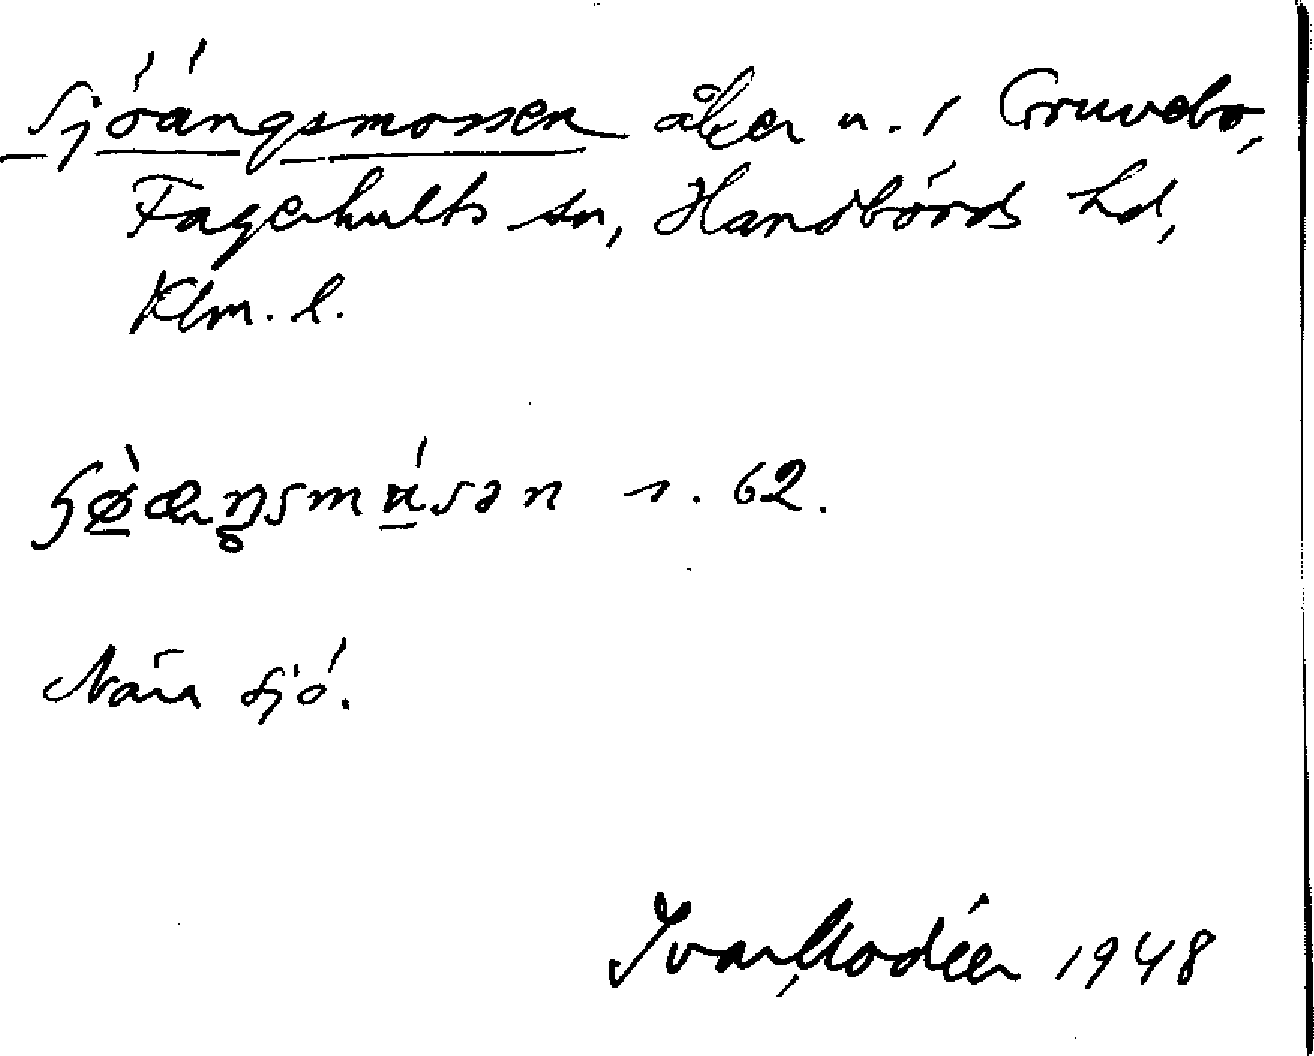 Sjöängsmossen åker n. 1 Gruvebo,
Fagerhults sn, Handbörds hd,
Klm. l.
s. 62.
Nära sjö.
Ivar Modéer 1948